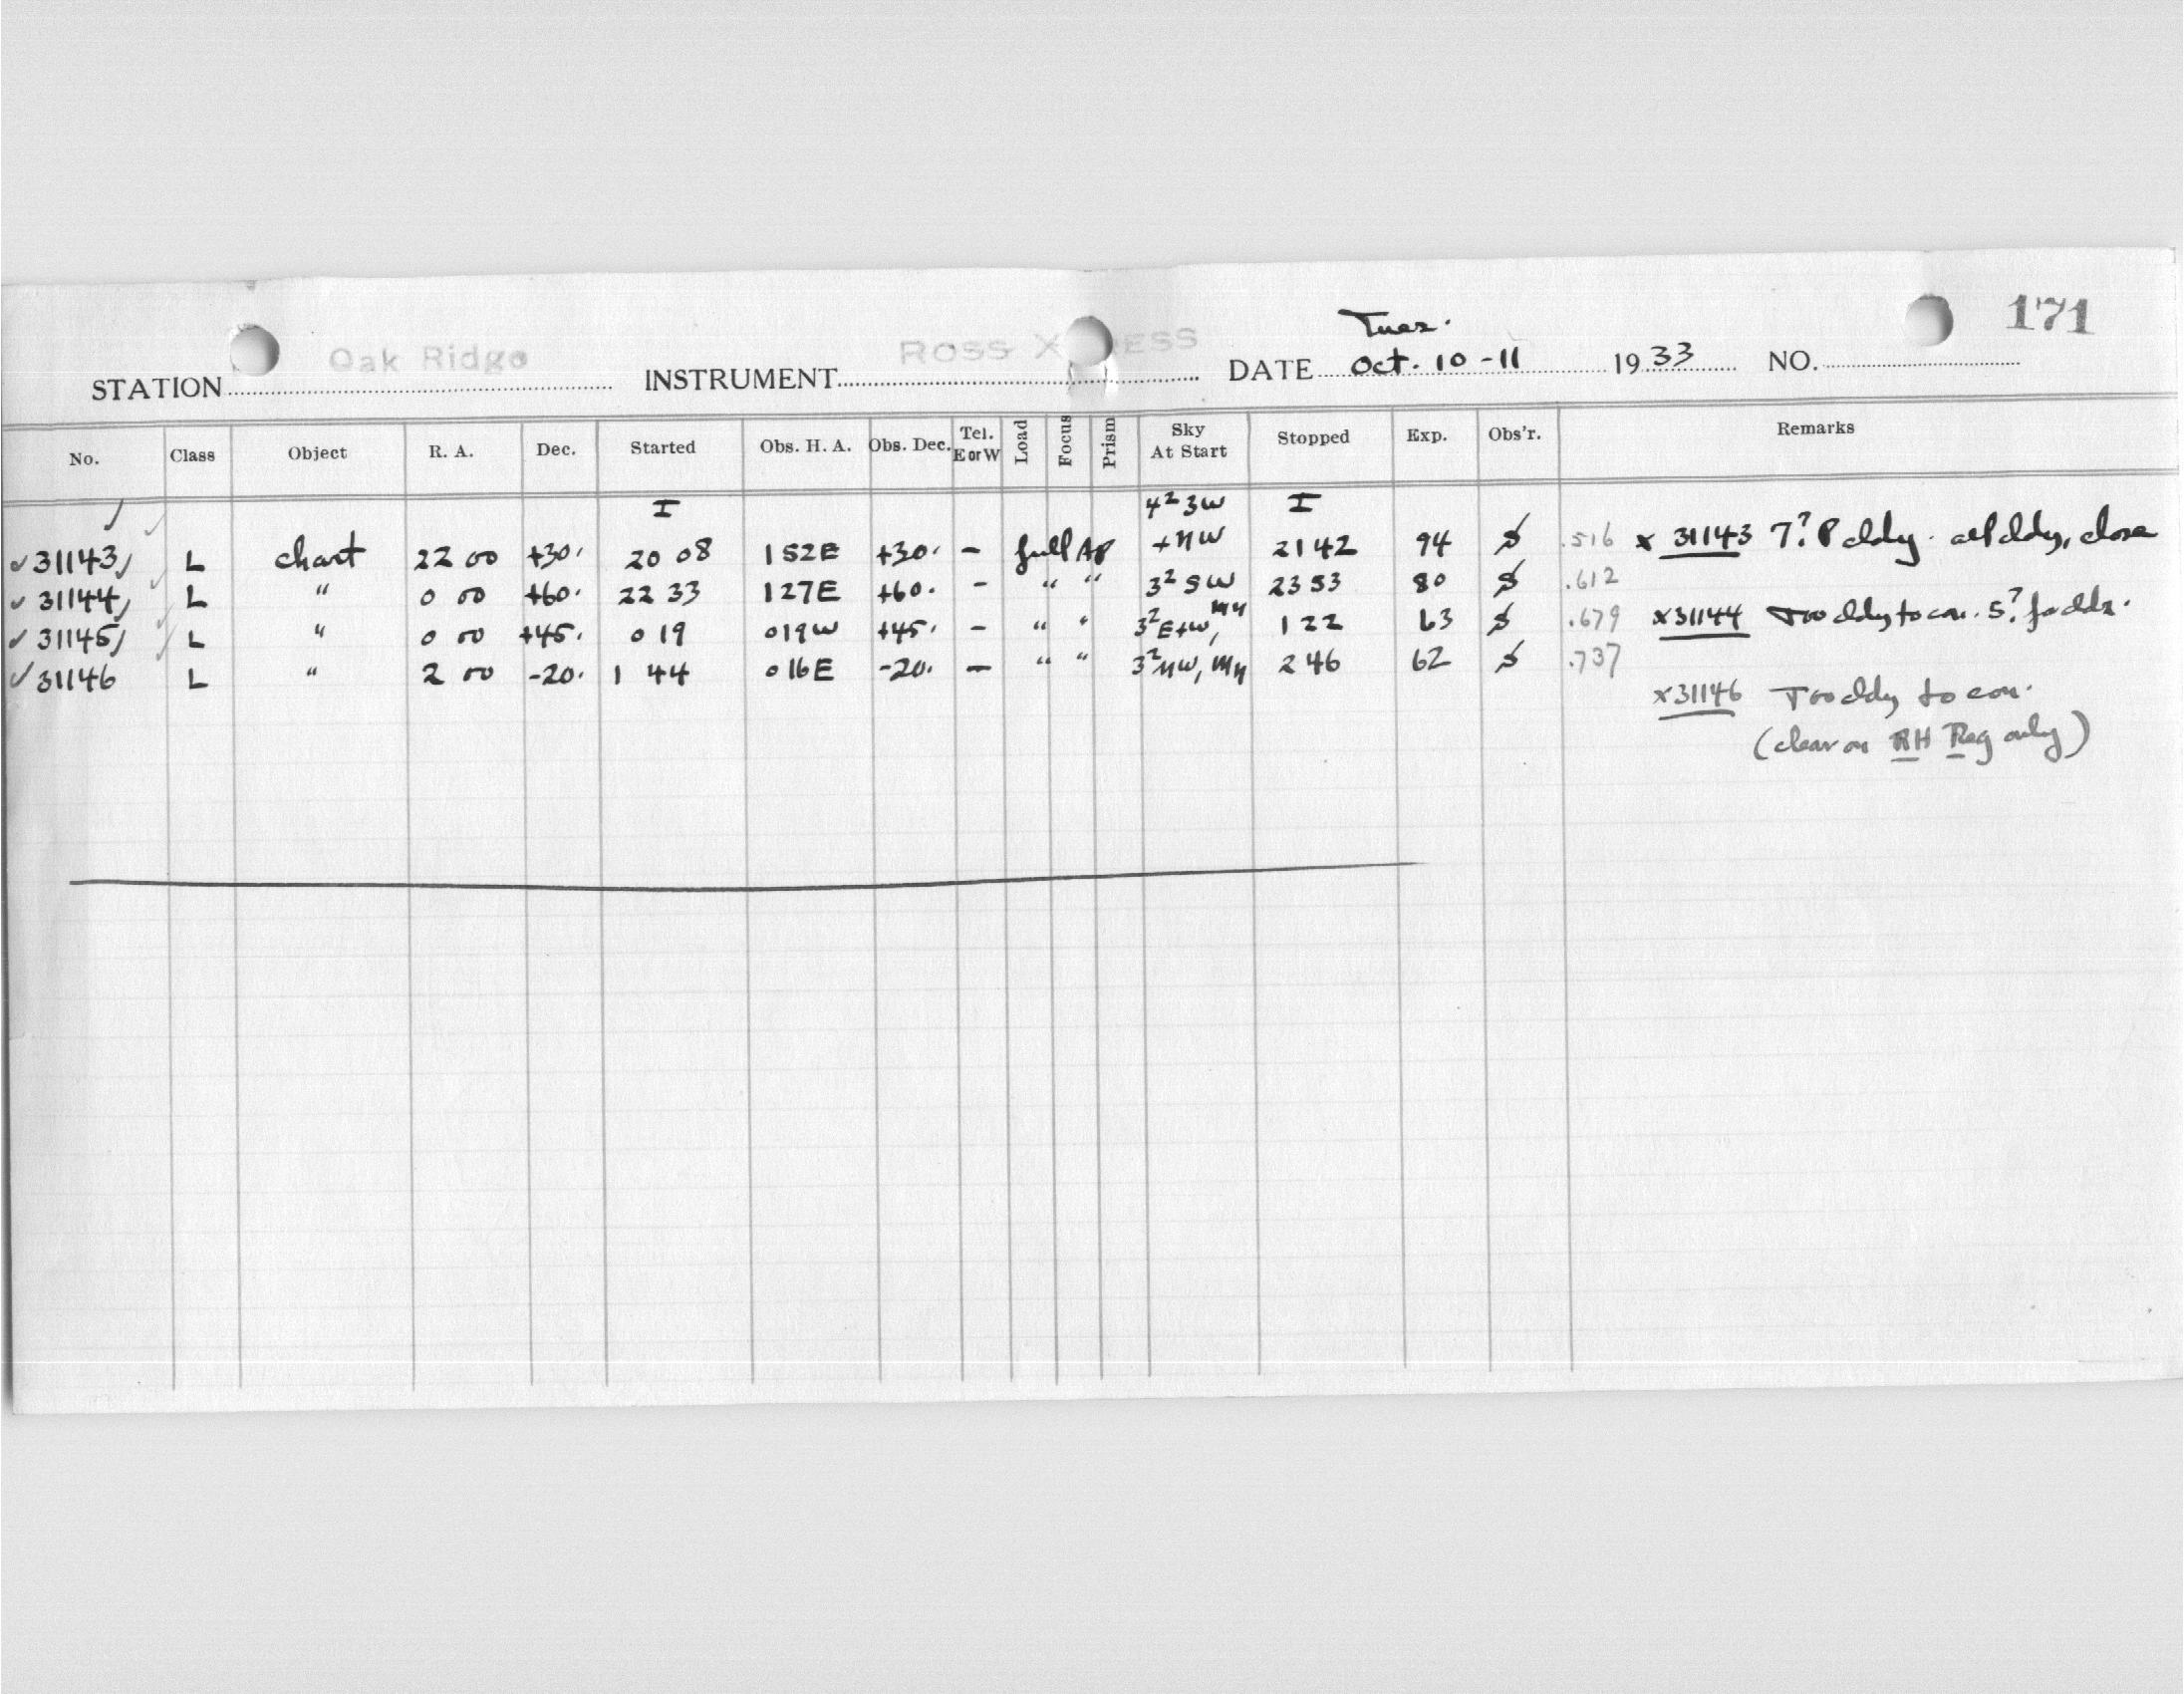 171
Tues.
STATION Oak Ridge INSTRUMENT ROSS X ESS DATE Oct. 10-11 1933 NO.
No. Class Object R. A. Dec. Started Obs. H. A. Obs. Dec. Tel. E or W Load Focus Prism Sky At Start Stopped Exp. Obs'r. Remarks
I 4² 3W I
✓31143 L chart 22 00 +30. 20 08 152E +30. - full Ap +NW 2142 94 .516 x 31143 7? P cldy. all cldy, close
✓31144 L " 0 00 +60. 22 33 127E +60. - " " 3² SW 2353 80 .612
✓31145 L " 0 00 +45. 0 19 019W +45. - " " 3² E+W, 122 63 .679 x31144 Too cldy to con. 5?
✓31146 L " 2 00 -20. 1 44 016E -20. - " " 3² NW, 246 62 .737
x31146 Too cldy to con.
(clear on RH Reg only)